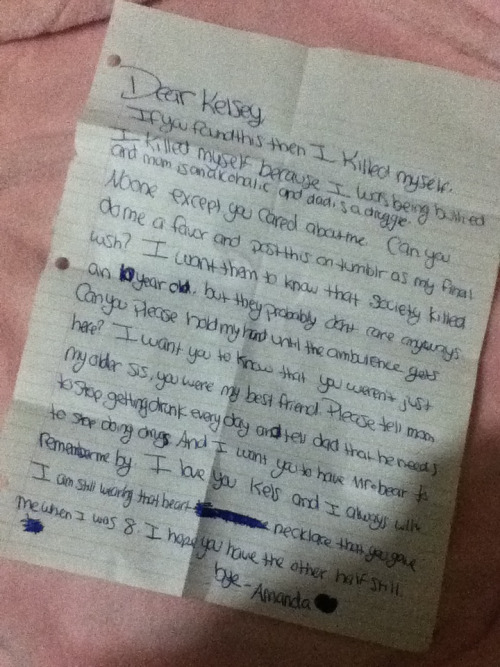 Dear Kelsey,
If you found this then I killed myself.
I killed myself because I was being bullied
and mom is an alcoholic and dad is a druggie.
Noone except you cared about me. Can you
do me a favor and post this on tumblr as my final
wish? I want them to know that society killed
an 10 year old. but they probably dont care anyways.
Can you please hold my hand until the ambulence gets
here? I want you to know that you weren't just
my older sis, you were my best friend. Please tell mom
to stop getting drunk every day and tell dad that he needs
to stop doing drugs. And I want you to have Mr. bear to
remember me by. I love you Kels and I always will.
I am still wearing that heart necklace that you gave
me when I was 8. I hope you have the other half still.
bye - Amanda